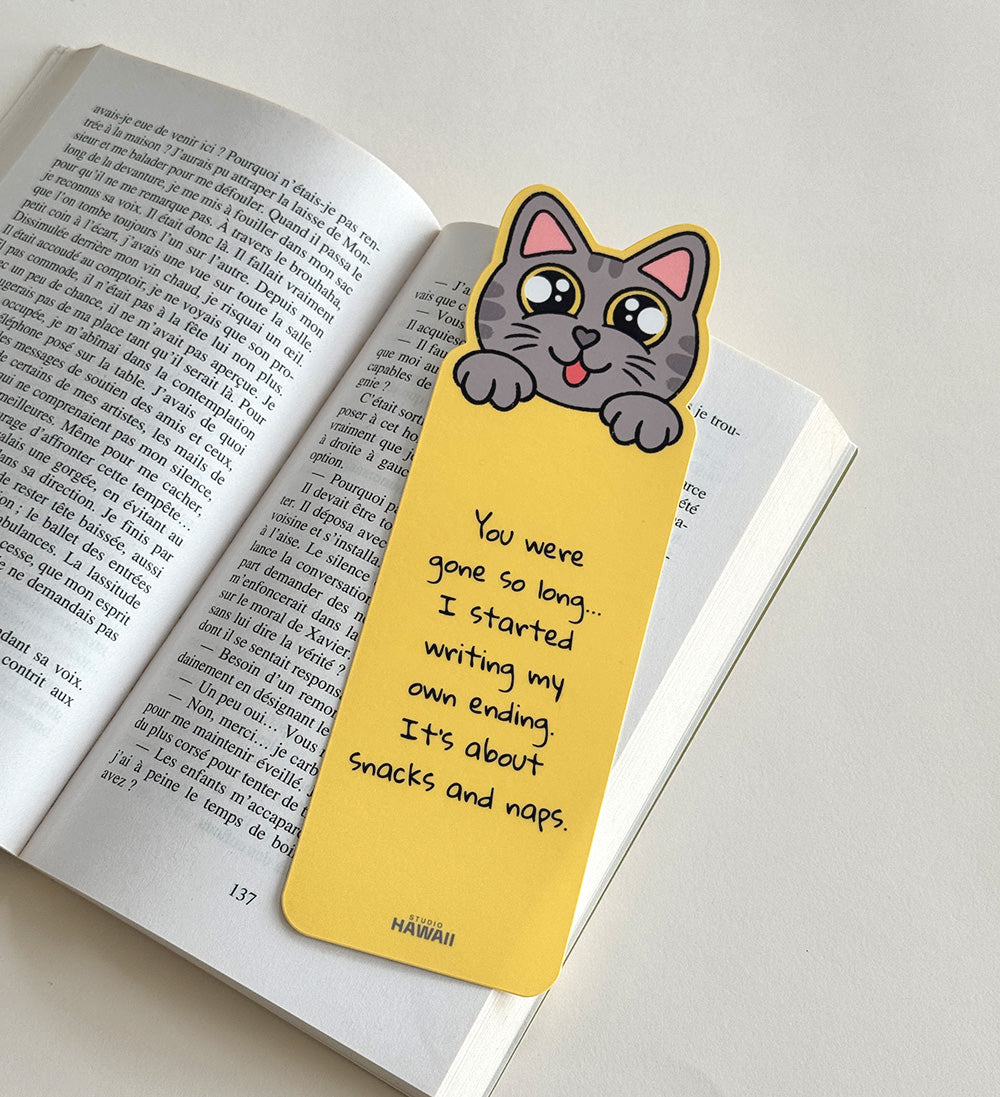 avais-je eue de venir ici ? Pourquoi n'étais-je pas ren-
trée à la maison ? J'aurais pu attraper la laisse de Mon-
sieur et me balader pour me défouler. Quand il passa le
long de la devanture, je me mis à fouiller dans mon sac
pour qu'il ne me remarque pas. À travers le brouhaha,
je reconnus sa voix. Il était donc là. Il fallait vraiment
que l'on tombe toujours l'un sur l'autre. Depuis mon
petit coin à l'écart, j'avais une vue sur toute la salle.
Dissimulée derrière mon vin chaud, je risquai un œil.
Il était accoudé au comptoir, je ne voyais que son pro-
pas commode, il n'était pas à la fête lui non plus.
un peu de chance, il ne m'avait pas aperçue. Je
pas de ma place tant qu'il serait là. Pour
occupée, je m'abîmai dans la contemplation
posé sur la table. J'avais de quoi
messages de soutien des amis et ceux,
de certains de mes artistes, les mails de
ne comprenaient pas mon silence,
meilleures. Même pour me cacher,
d'affronter cette tempête…
une gorgée, en évitant au
dans sa direction. Je finis par
de rester tête baissée, aussi
; le ballet des entrées
La lassitude
que mon esprit
ne demandais pas
sa voix.
contrit aux
— J'a
vais que c
— Vous
Il acquies
— Il fau
que moi au
capables de
gnie ?
C'était sort
poser à cet ho
vraiment que j
à droite à gauc
option.
— Pourquoi p
Il devait être to
ter. Il déposa avec
voisine et s'installa
à l'aise. Le silence
lance la conversation
part demander des n
m'enfoncerait dans la
sur le moral de Xavier
sans lui dire la vérité ?
dont il se sentait respons
— Besoin d'un remon
dainement en désignant le
— Un peu oui… Vous
— Non, merci… je carb
pour me maintenir éveillé.
du plus corsé pour tenter de
— Les enfants m'accapar
j'ai à peine le temps de boi
avez ?
137
je trou-
You were
gone so long...
I started
writing my
own ending.
It's about
snacks and naps.
STUDIO
HAWAII